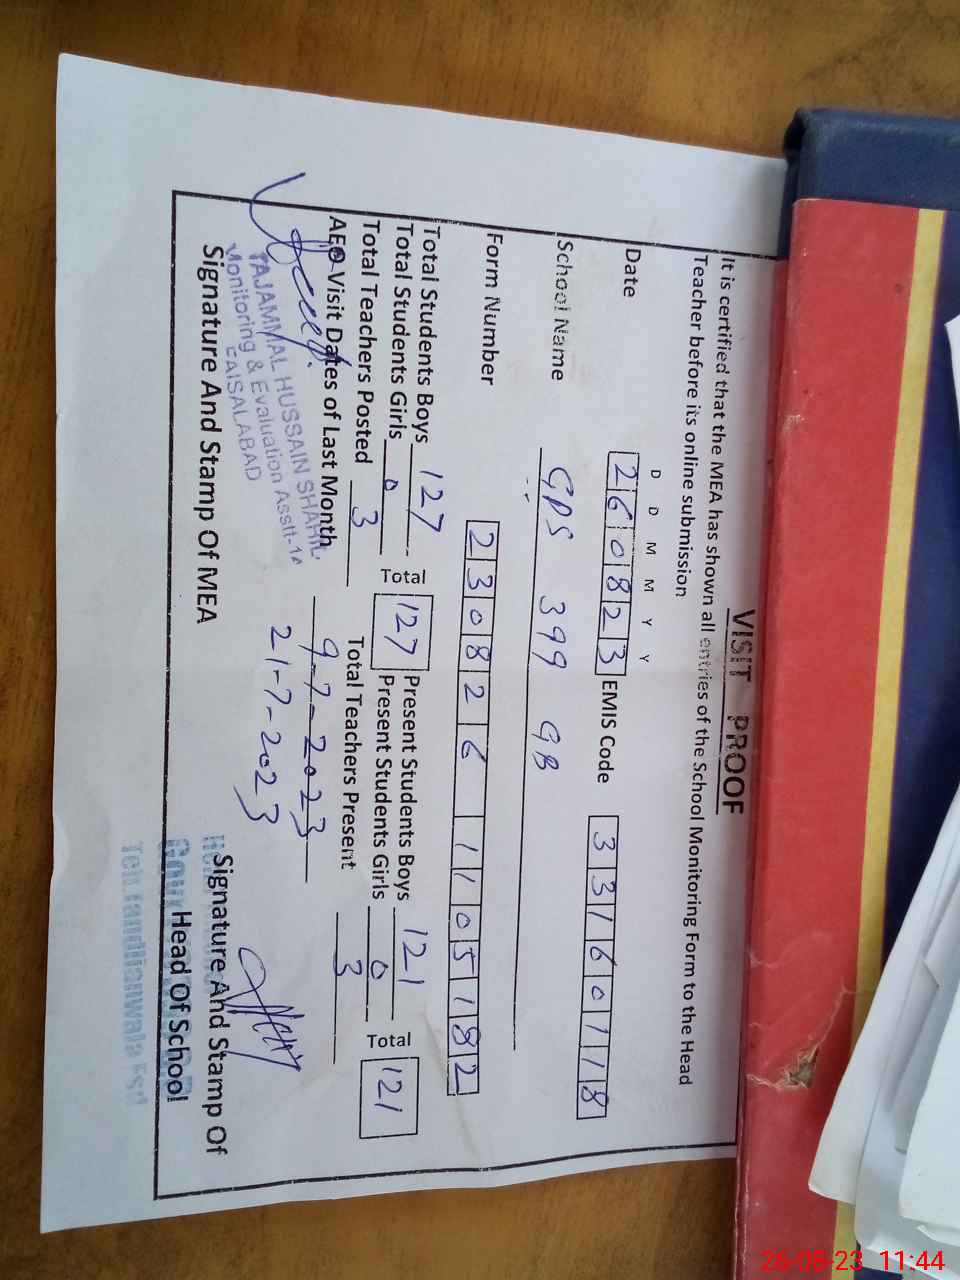 VISIT PROOF
It is certified that the MEA has shown all entries of the School Monitoring Form to the Head
Teacher before its online submission
D D M M Y Y
Date 260823 EMIS Code 33160118
School Name GPS 399 GB
Form Number 230826 1105182
Total Students Boys 127 Total 127 Present Students Boys 121 Total 121
Total Students Girls 0 Present Students Girls 0
Total Teachers Posted 3 Total Teachers Present 3
AEO Visit Dates of Last Month 9-7-2023
21-7-2023
TAJAMMAL HUSSAIN SHAHID
Monitoring & Evaluation Asstt-1
FAISALABAD
Signature And Stamp Of MEA
Signature And Stamp Of
Head Of School
Teh. Tandlianwala Fsd
26-08-23 11:44